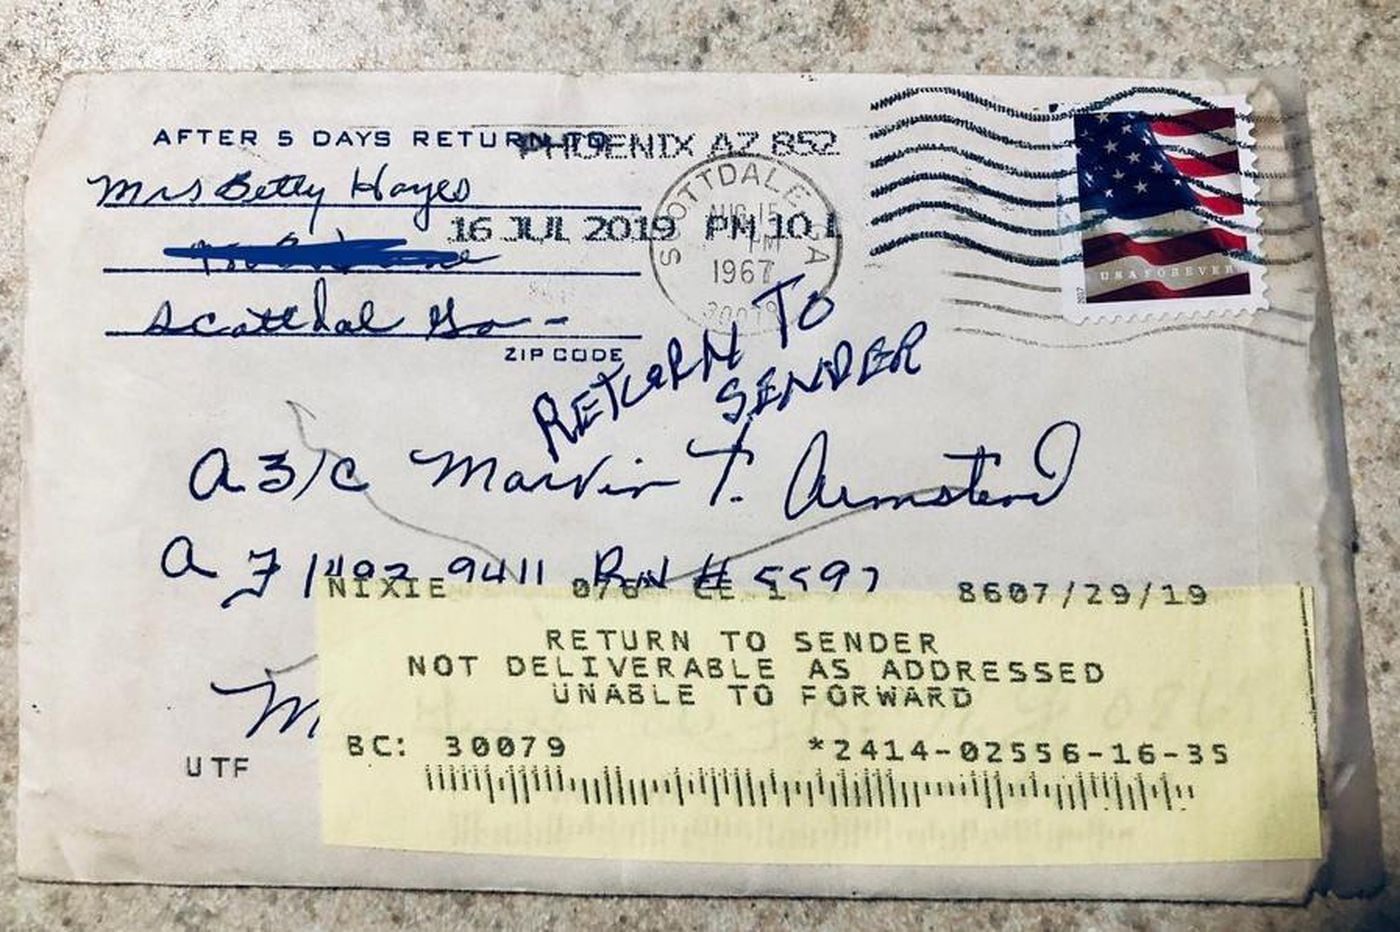 AFTER 5 DAYS RETURN TO
PHOENIX AZ 852
Mrs Betty Hayes
16 JUL 2019 PM 10 L
SCOTTDALE GA
AUG 15
PM
1967
30079
Scottdal Ga -
ZIP CODE
USA FOREVER
2017
RETURN TO
SENDER
A3/C Marvin T. Armstead
AF 1492 9411 # 5597
NIXIE
8607/29/19
RETURN TO SENDER
NOT DELIVERABLE AS ADDRESSED
UNABLE TO FORWARD
UTF
BC: 30079 *2414-02556-16-35